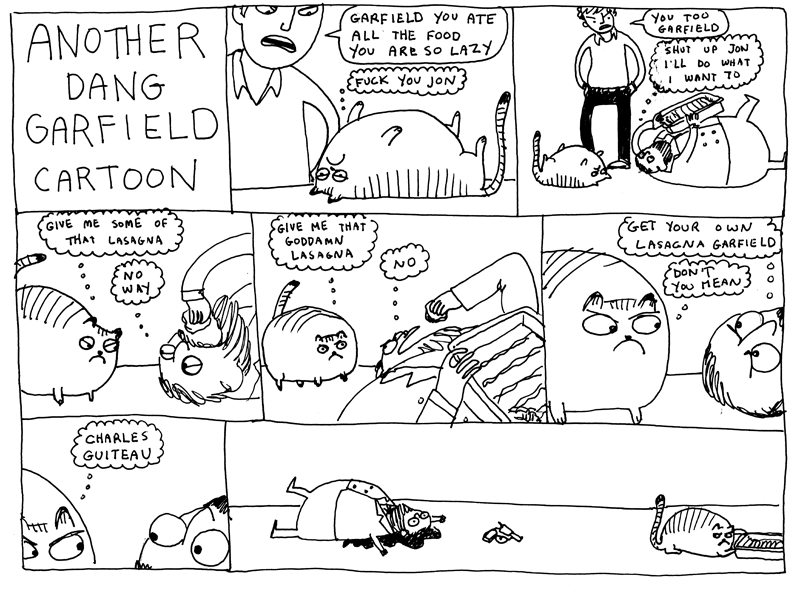 ANOTHER
DANG
GARFIELD
CARTOON
GARFIELD YOU ATE
ALL THE FOOD
YOU ARE SO LAZY
FUCK YOU JON
YOU TOO
GARFIELD
SHUT UP JON
I'LL DO WHAT
I WANT TO
GIVE ME SOME OF
THAT LASAGNA
NO
WAY
GIVE ME THAT
GODDAMN
LASAGNA
NO
GET YOUR OWN
LASAGNA GARFIELD
DON'T
YOU MEAN
CHARLES
GUITEAU